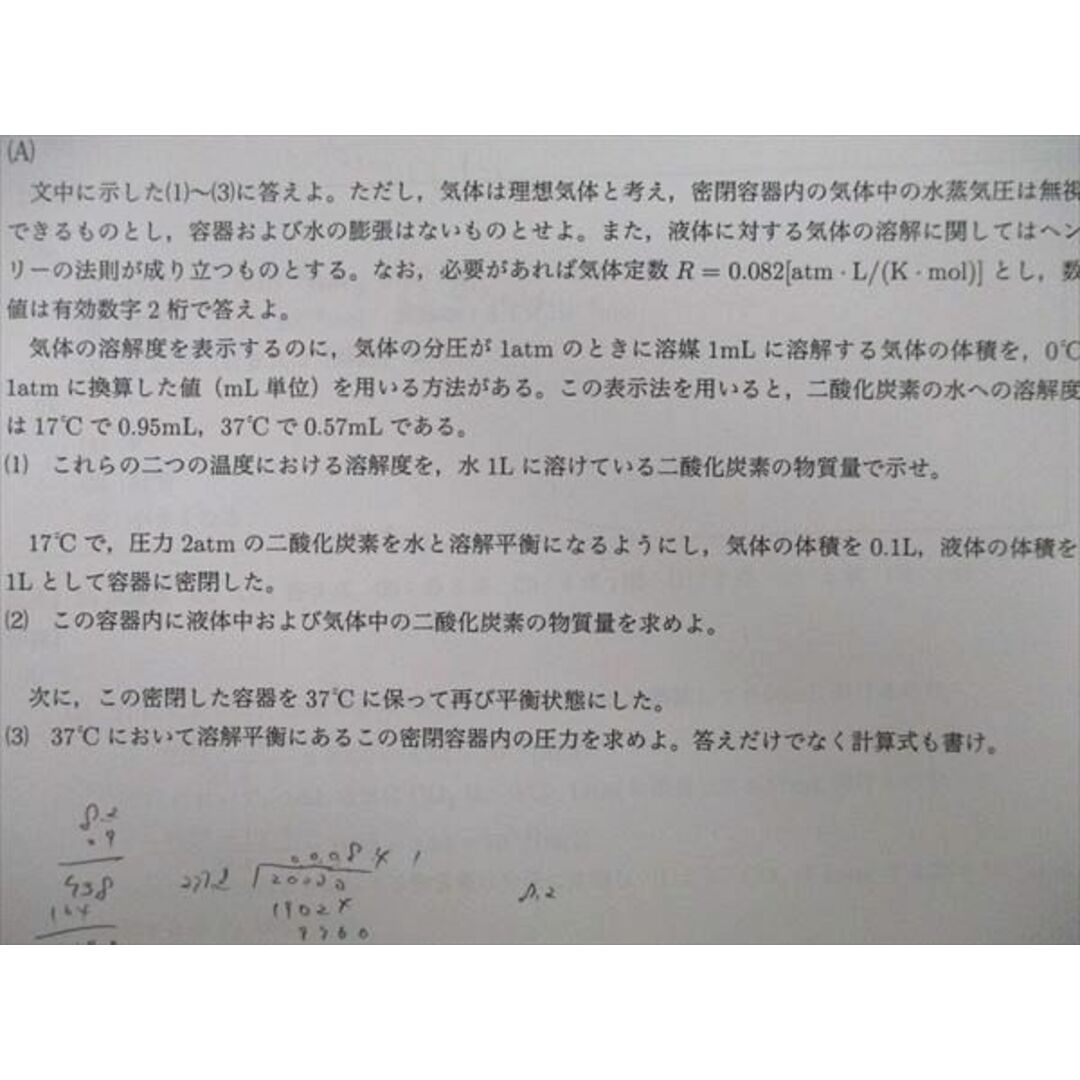 (A)
文中に示した(1)～(3)に答えよ。ただし，気体は理想気体と考え，密閉容器内の気体中の水蒸気圧は無視
できるものとし，容器および水の膨張はないものとせよ。また，液体に対する気体の溶解に関してはヘン
リーの法則が成り立つものとする。なお，必要があれば気体定数 R = 0.082[atm・L/(K・mol)] とし，数
値は有効数字 2 桁で答えよ。
気体の溶解度を表示するのに，気体の分圧が 1atm のときに溶媒 1mL に溶解する気体の体積を，0℃
1atm に換算した値（mL 単位）を用いる方法がある。この表示法を用いると，二酸化炭素の水への溶解度
は 17℃ で 0.95mL，37℃ で 0.57mL である。
(1) これらの二つの温度における溶解度を，水 1L に溶けている二酸化炭素の物質量で示せ。
17℃ で，圧力 2atm の二酸化炭素を水と溶解平衡になるようにし，気体の体積を 0.1L，液体の体積を
1L として容器に密閉した。
(2) この容器内に液体中および気体中の二酸化炭素の物質量を求めよ。
次に，この密閉した容器を 37℃ に保って再び平衡状態にした。
(3) 37℃ において溶解平衡にあるこの密閉容器内の圧力を求めよ。答えだけでなく計算式も書け。
8.2
164
8.2